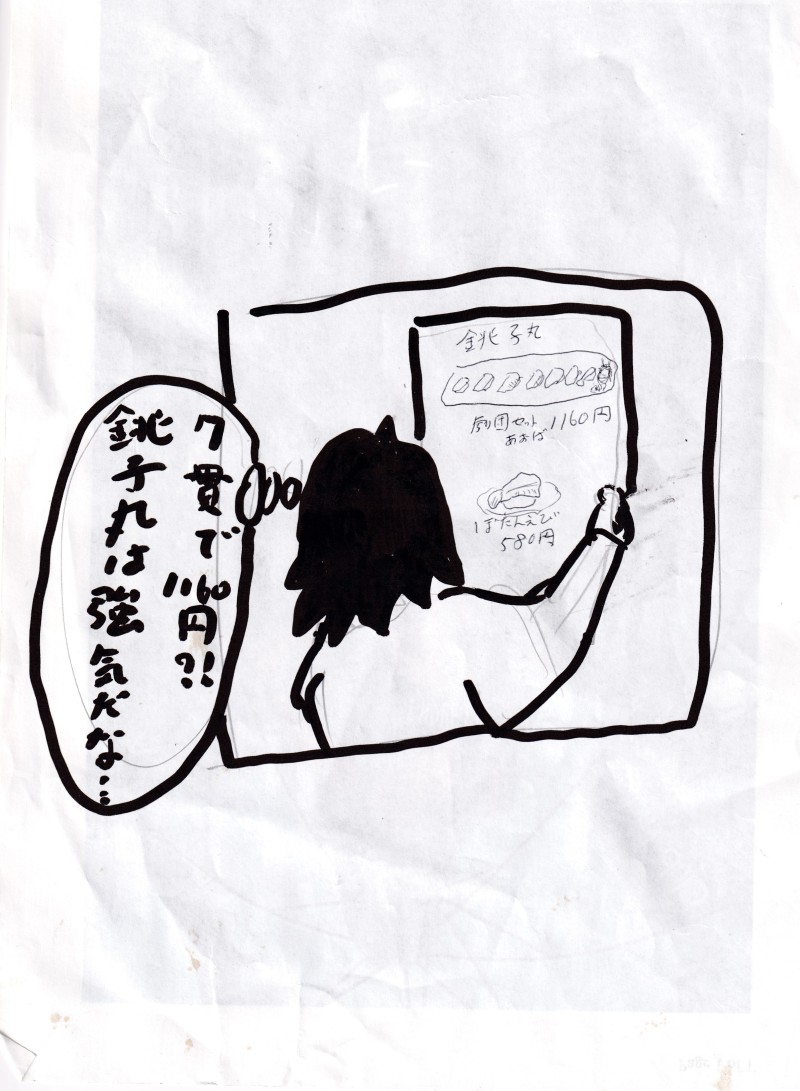 7貫で
1160
円?!
銚子丸は強気だな…
銚子丸
劇団セット 1160円
あおば
ぼたんえび
580円